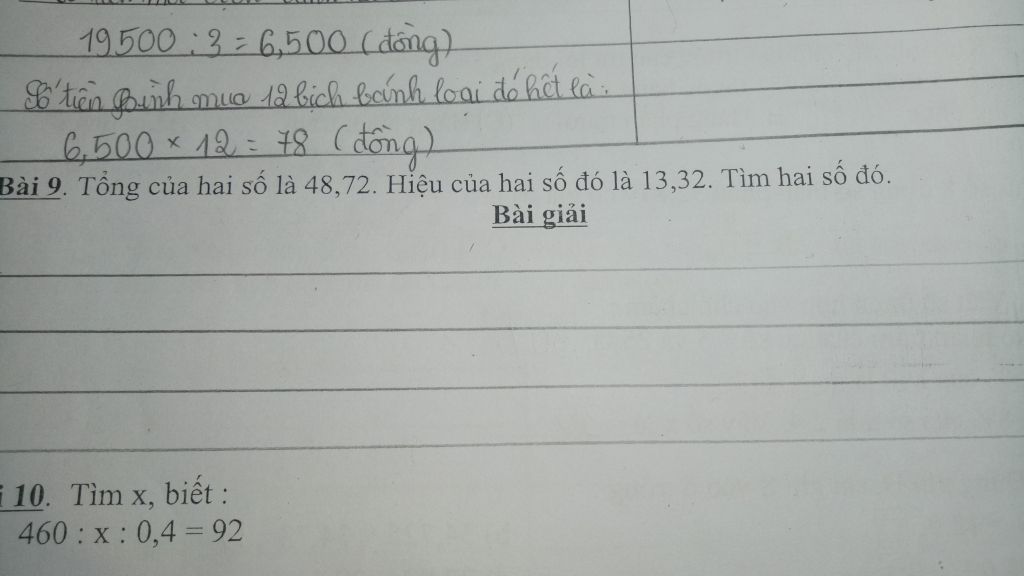 19500 : 3 = 6,500 (đồng)
Số tiền Bình mua 12 bịch bánh loại đó hết là:
6,500 × 12 = 78 (đồng)
Bài 9. Tổng của hai số là 48,72. Hiệu của hai số đó là 13,32. Tìm hai số đó.
Bài giải
i 10. Tìm x, biết :
460 : x : 0,4 = 92